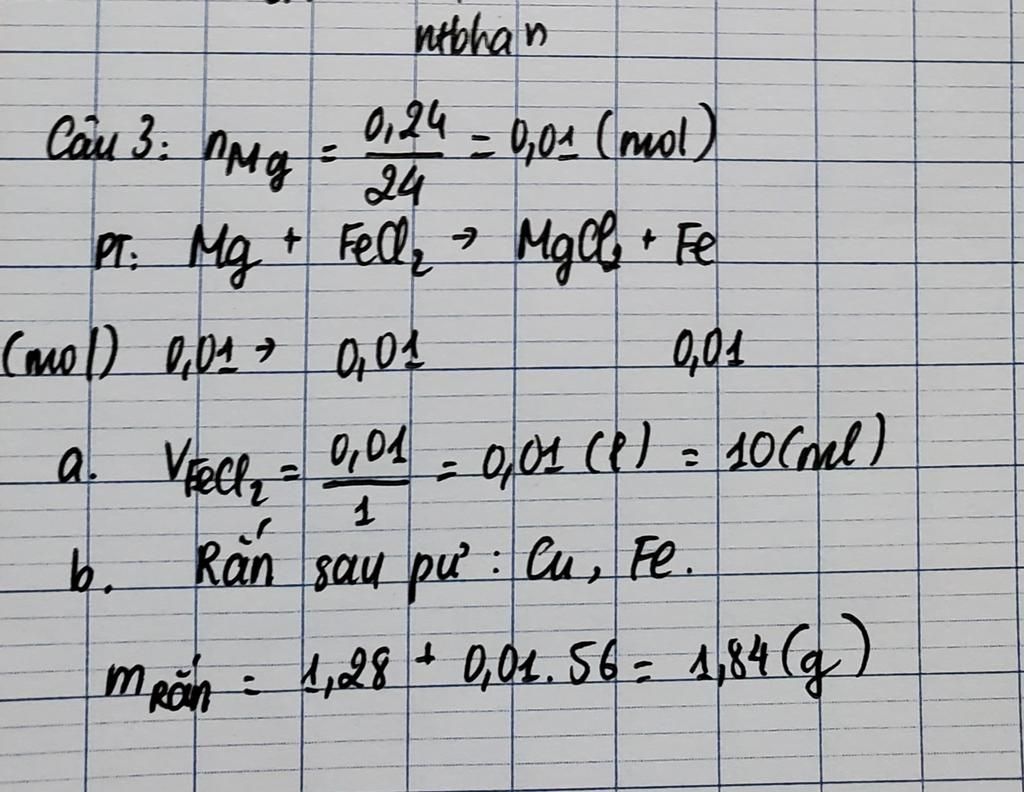 nthbhan
Câu 3: nMg = 0,24/24 = 0,01 (mol)
PT: Mg + FeCl₂ → MgCl₂ + Fe
(mol) 0,01 → 0,01 0,01
a. VFeCl₂ = 0,01/1 = 0,01 (l) = 10 (ml)
b. Rắn sau pư : Cu, Fe.
mRắn = 1,28 + 0,01. 56 = 1,84 (g)